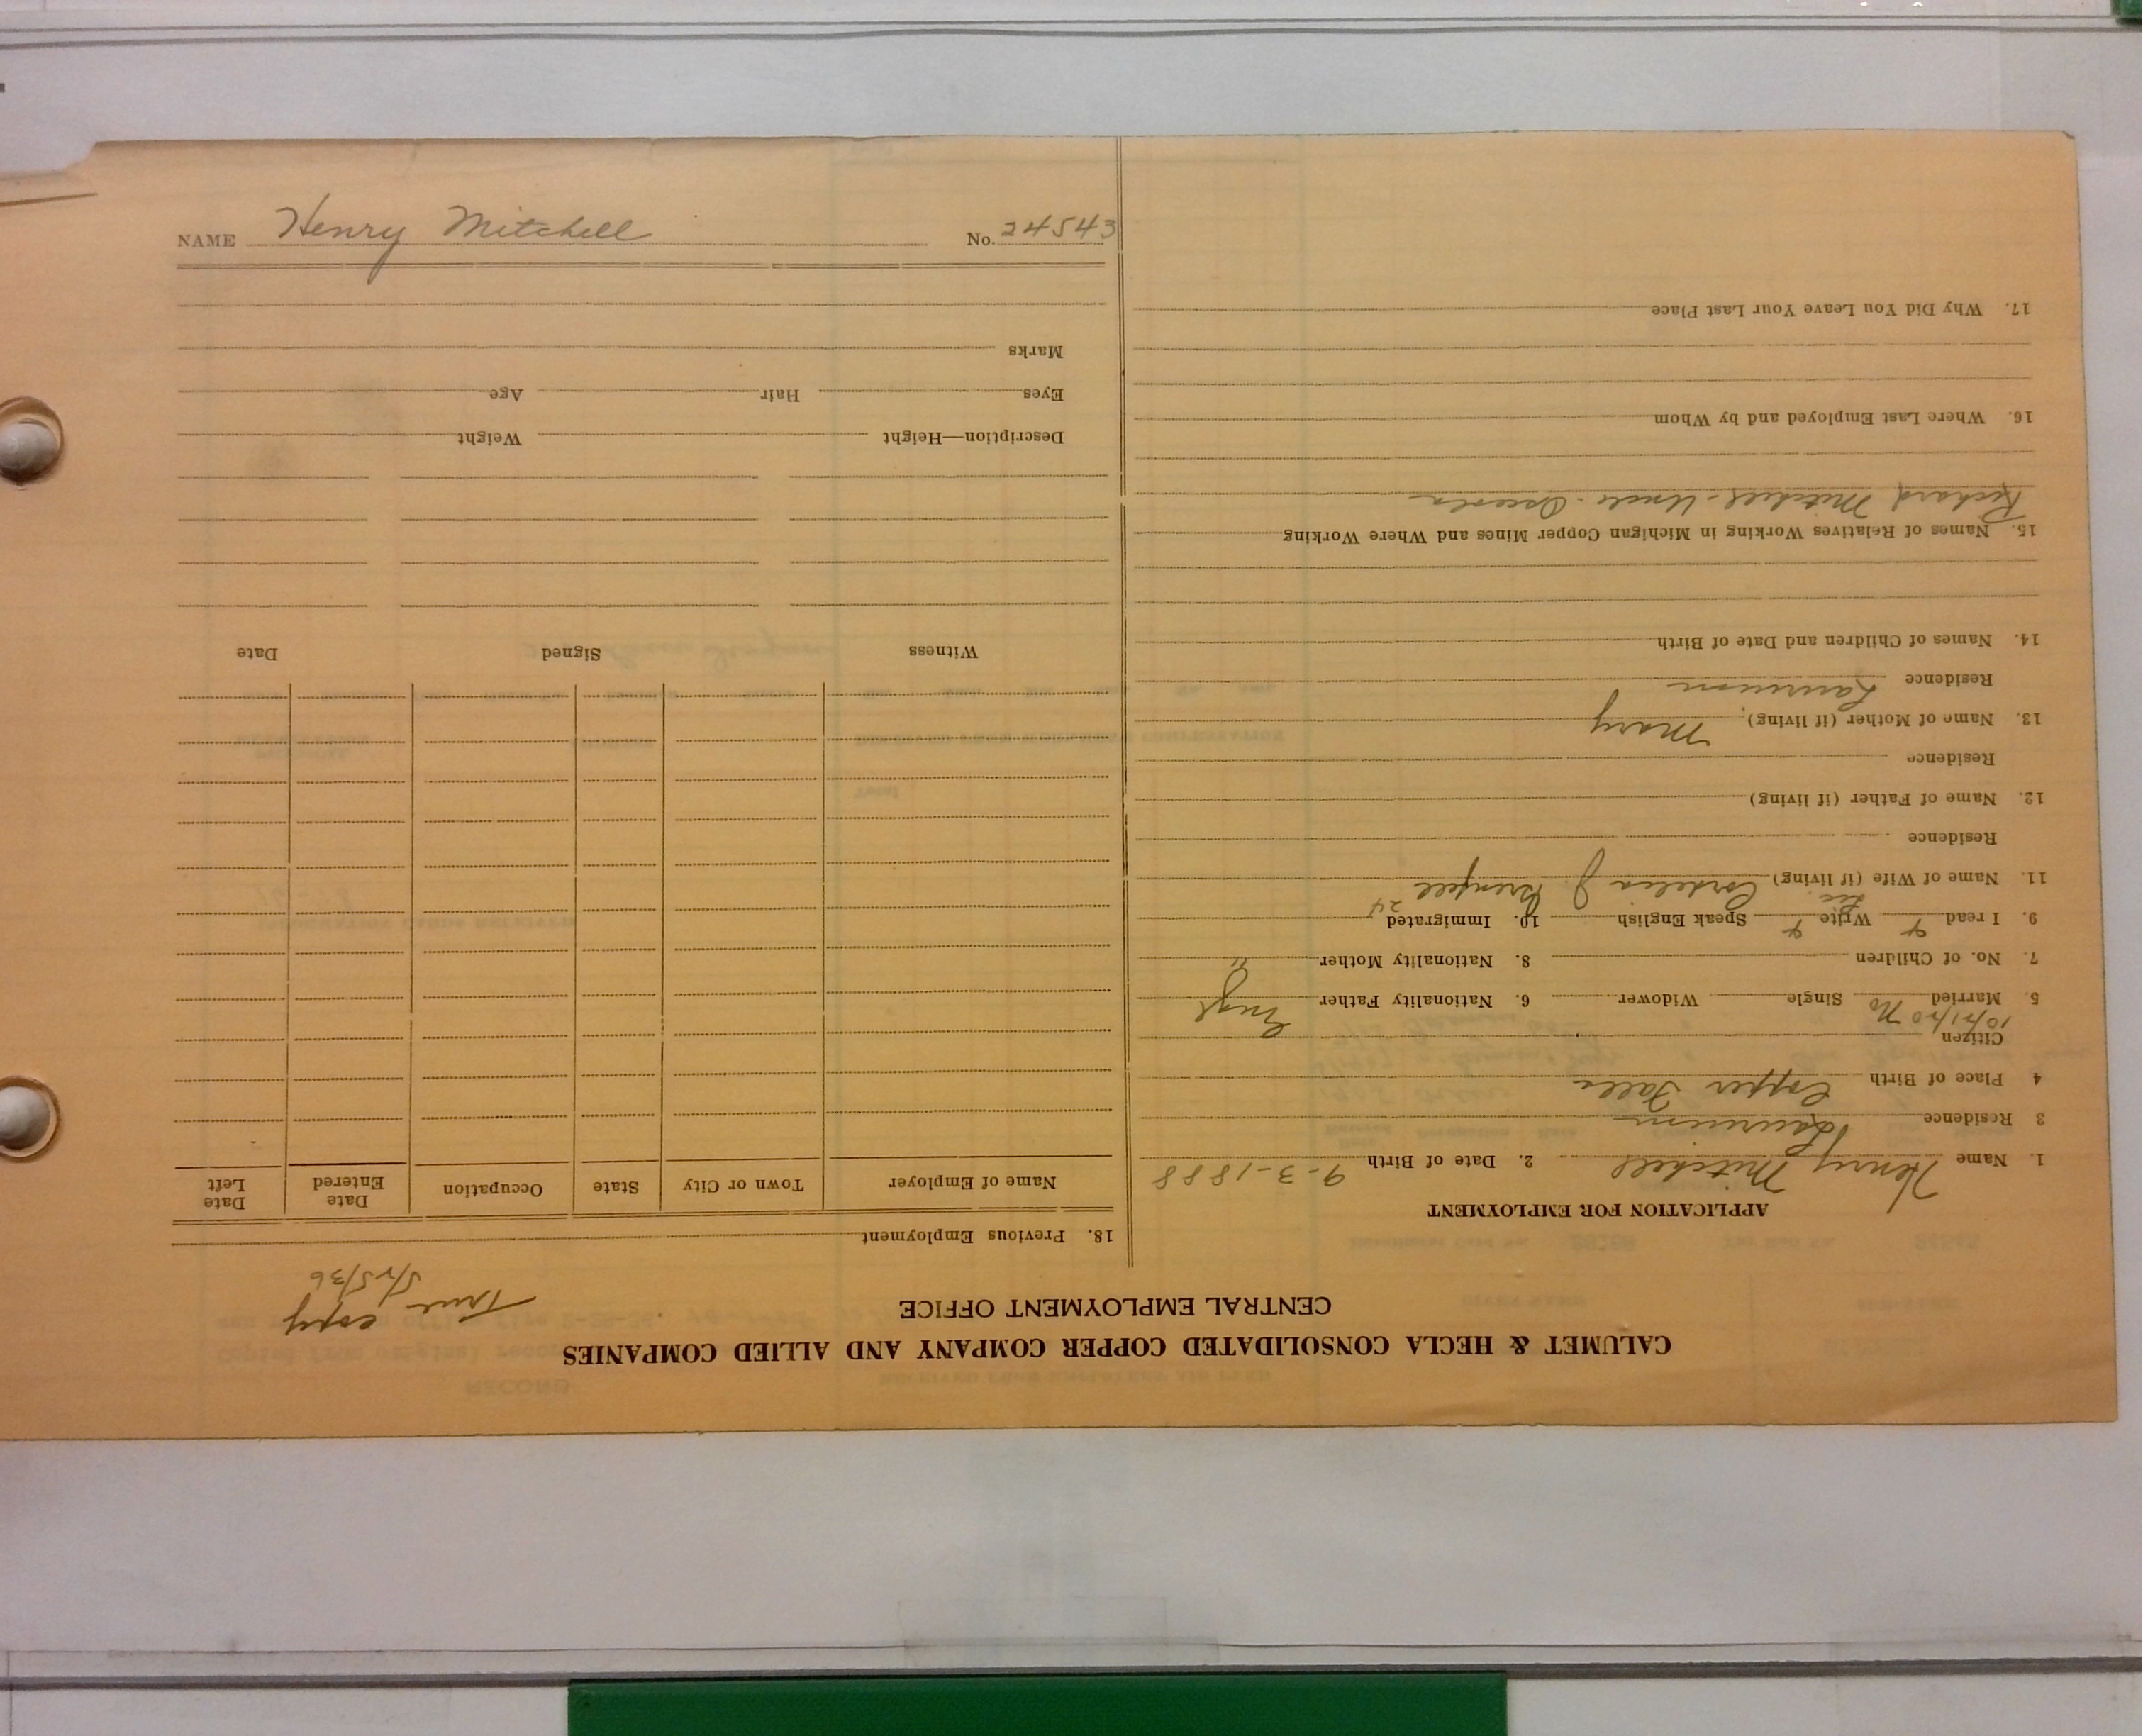 CALUMET & HECLA CONSOLIDATED COPPER COMPANY AND ALLIED COMPANIES
CENTRAL EMPLOYMENT OFFICE
True copy
5/25/36
APPLICATION FOR EMPLOYMENT
1. Name Henry Mitchell 2. Date of Birth 9-3-1888
3 Residence Laurium
4 Place of Birth Copper Falls
Citizen
10/21/20 No
5. Married Single Widower 6. Nationality Father Engl
7. No. of Children 8. Nationality Mother "
9. I read Write Speak English 10. Immigrated
11. Name of Wife (if living) Cordelia J.
Residence
12. Name of Father (if living)
Residence
13. Name of Mother (if living) Mary
Residence Laurium
14. Names of Children and Date of Birth
15. Names of Relatives Working in Michigan Copper Mines and Where Working
Richard Mitchell - Uncle - Osceola
16. Where Last Employed and by Whom
17. Why Did You Leave Your Last Place
18. Previous Employment
Name of Employer Town or City State Occupation Date Entered Date Left
Witness Signed Date
Description—Height Weight
Eyes Hair Age
Marks
NAME Henry Mitchell No. 24543